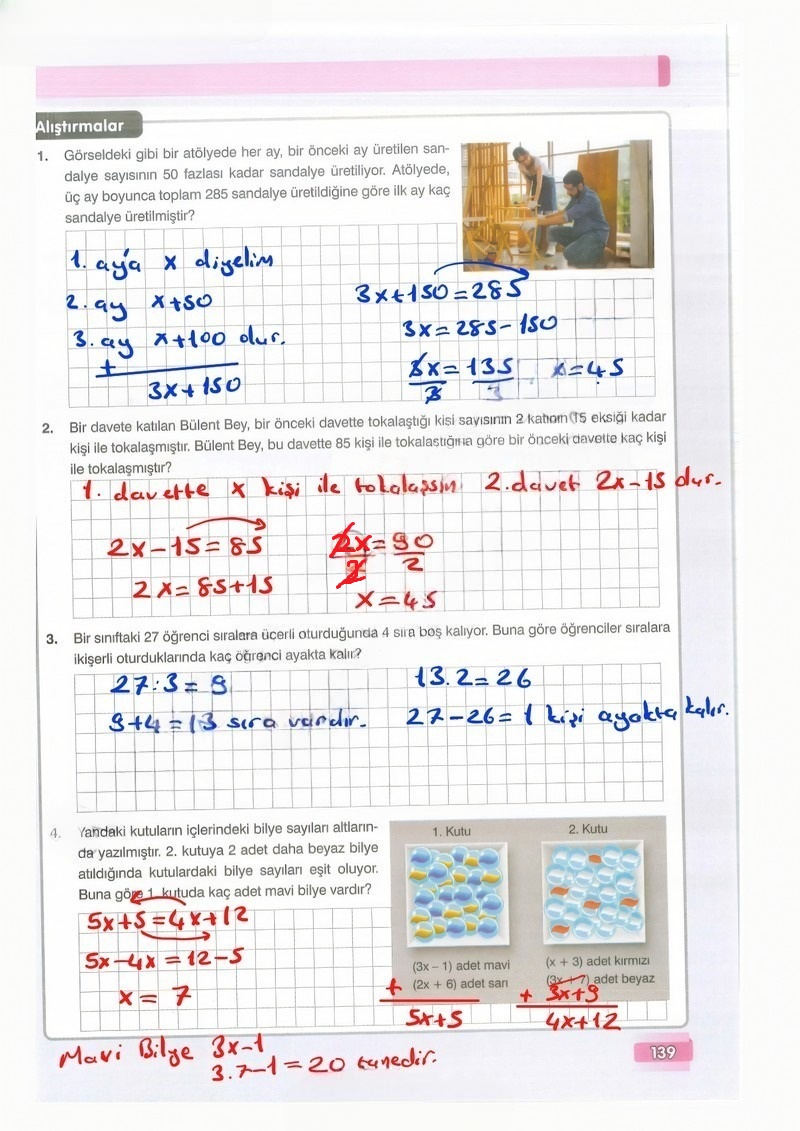 Alıştırmalar
1. Görseldeki gibi bir atölyede her ay, bir önceki ay üretilen san-
dalye sayısının 50 fazlası kadar sandalye üretiliyor. Atölyede,
üç ay boyunca toplam 285 sandalye üretildiğine göre ilk ay kaç
sandalye üretilmiştir?
1. ay'a x diyelim
2. ay x+50
3. ay x+100 dur.
+
3x+150
3x+150=285
3x=285-150
3x=135
3 3
x=45
2. Bir davete katılan Bülent Bey, bir önceki davette tokalaştığı kişi sayısının 2 katının 15 eksiği kadar
kişi ile tokalaşmıştır. Bülent Bey, bu davette 85 kişi ile tokalaştığına göre bir önceki davette kaç kişi
ile tokalaşmıştır?
1. davette x kişi ile tokalaşsın 2. davet 2x-15 dur.
2x-15=85
2x=85+15
2x=90
2 2
x=45
3. Bir sınıftaki 27 öğrenci sıralara üçerli oturduğunda 4 sıra boş kalıyor. Buna göre öğrenciler sıralara
ikişerli oturduklarında kaç öğrenci ayakta kalır?
27:3=9
9+4=13 sıra vardır.
13.2=26
27-26=1 kişi ayakta kalır.
4. Yandaki kutuların içlerindeki bilye sayıları altların-
da yazılmıştır. 2. kutuya 2 adet daha beyaz bilye
atıldığında kutulardaki bilye sayıları eşit oluyor.
Buna göre 1. kutuda kaç adet mavi bilye vardır?
5x+5=4x+12
5x-4x=12-5
x=7
1. Kutu
(3x – 1) adet mavi
(2x + 6) adet sarı
+
5x+5
2. Kutu
(x + 3) adet kırmızı
(3x + 7) adet beyaz
+ 3x+9
4x+12
Mavi Bilye 3x-1
3.7-1=20 tanedir.
139